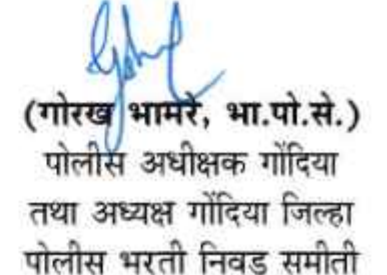 (गोरख भामरे, भा.पो.से.)
पोलीस अधीक्षक गोंदिया
तथा अध्यक्ष गोंदिया जिल्हा
पोलीस भरती निवड समीती